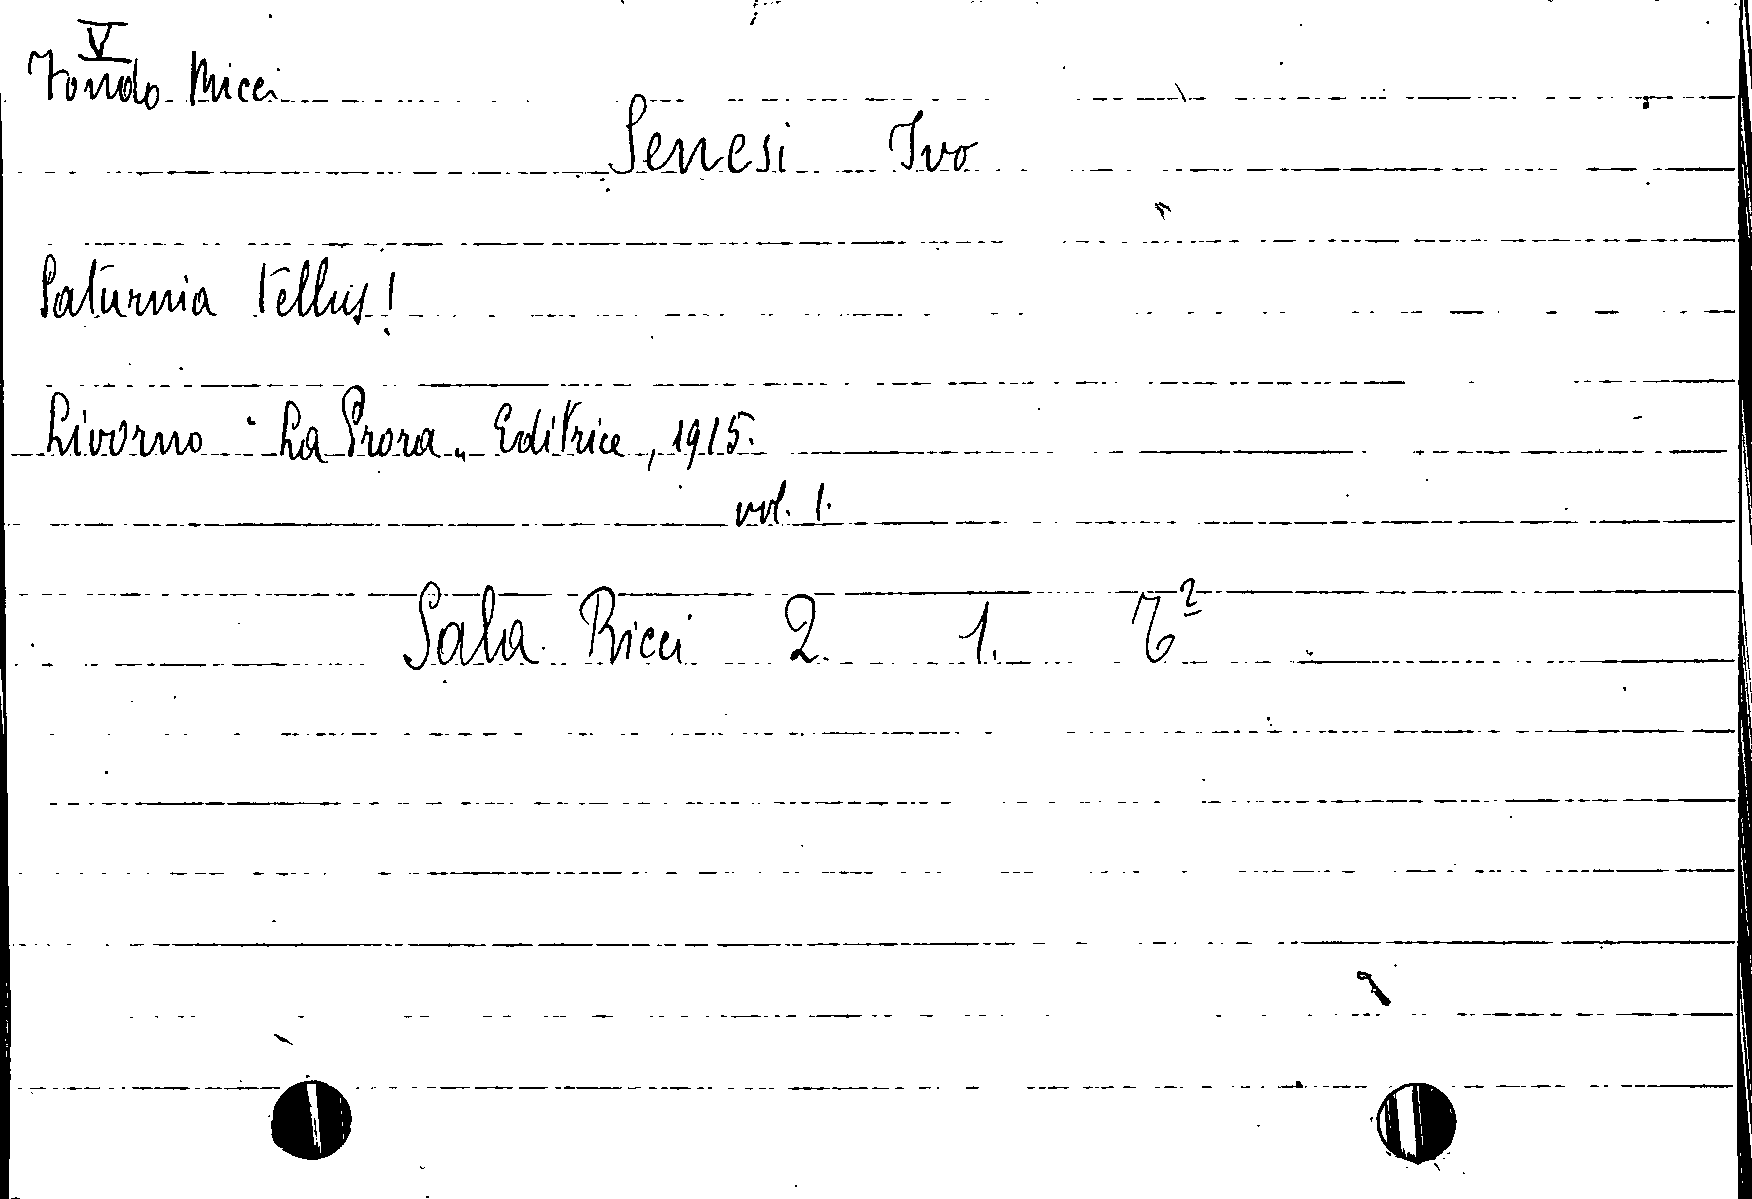 V
Fondo Ricci
Senesi Ivo
Saturnia Tellus!
Livorno "La Prora„ Editrice, 1915.
vol. 1.
Sala Ricci 2. 1.